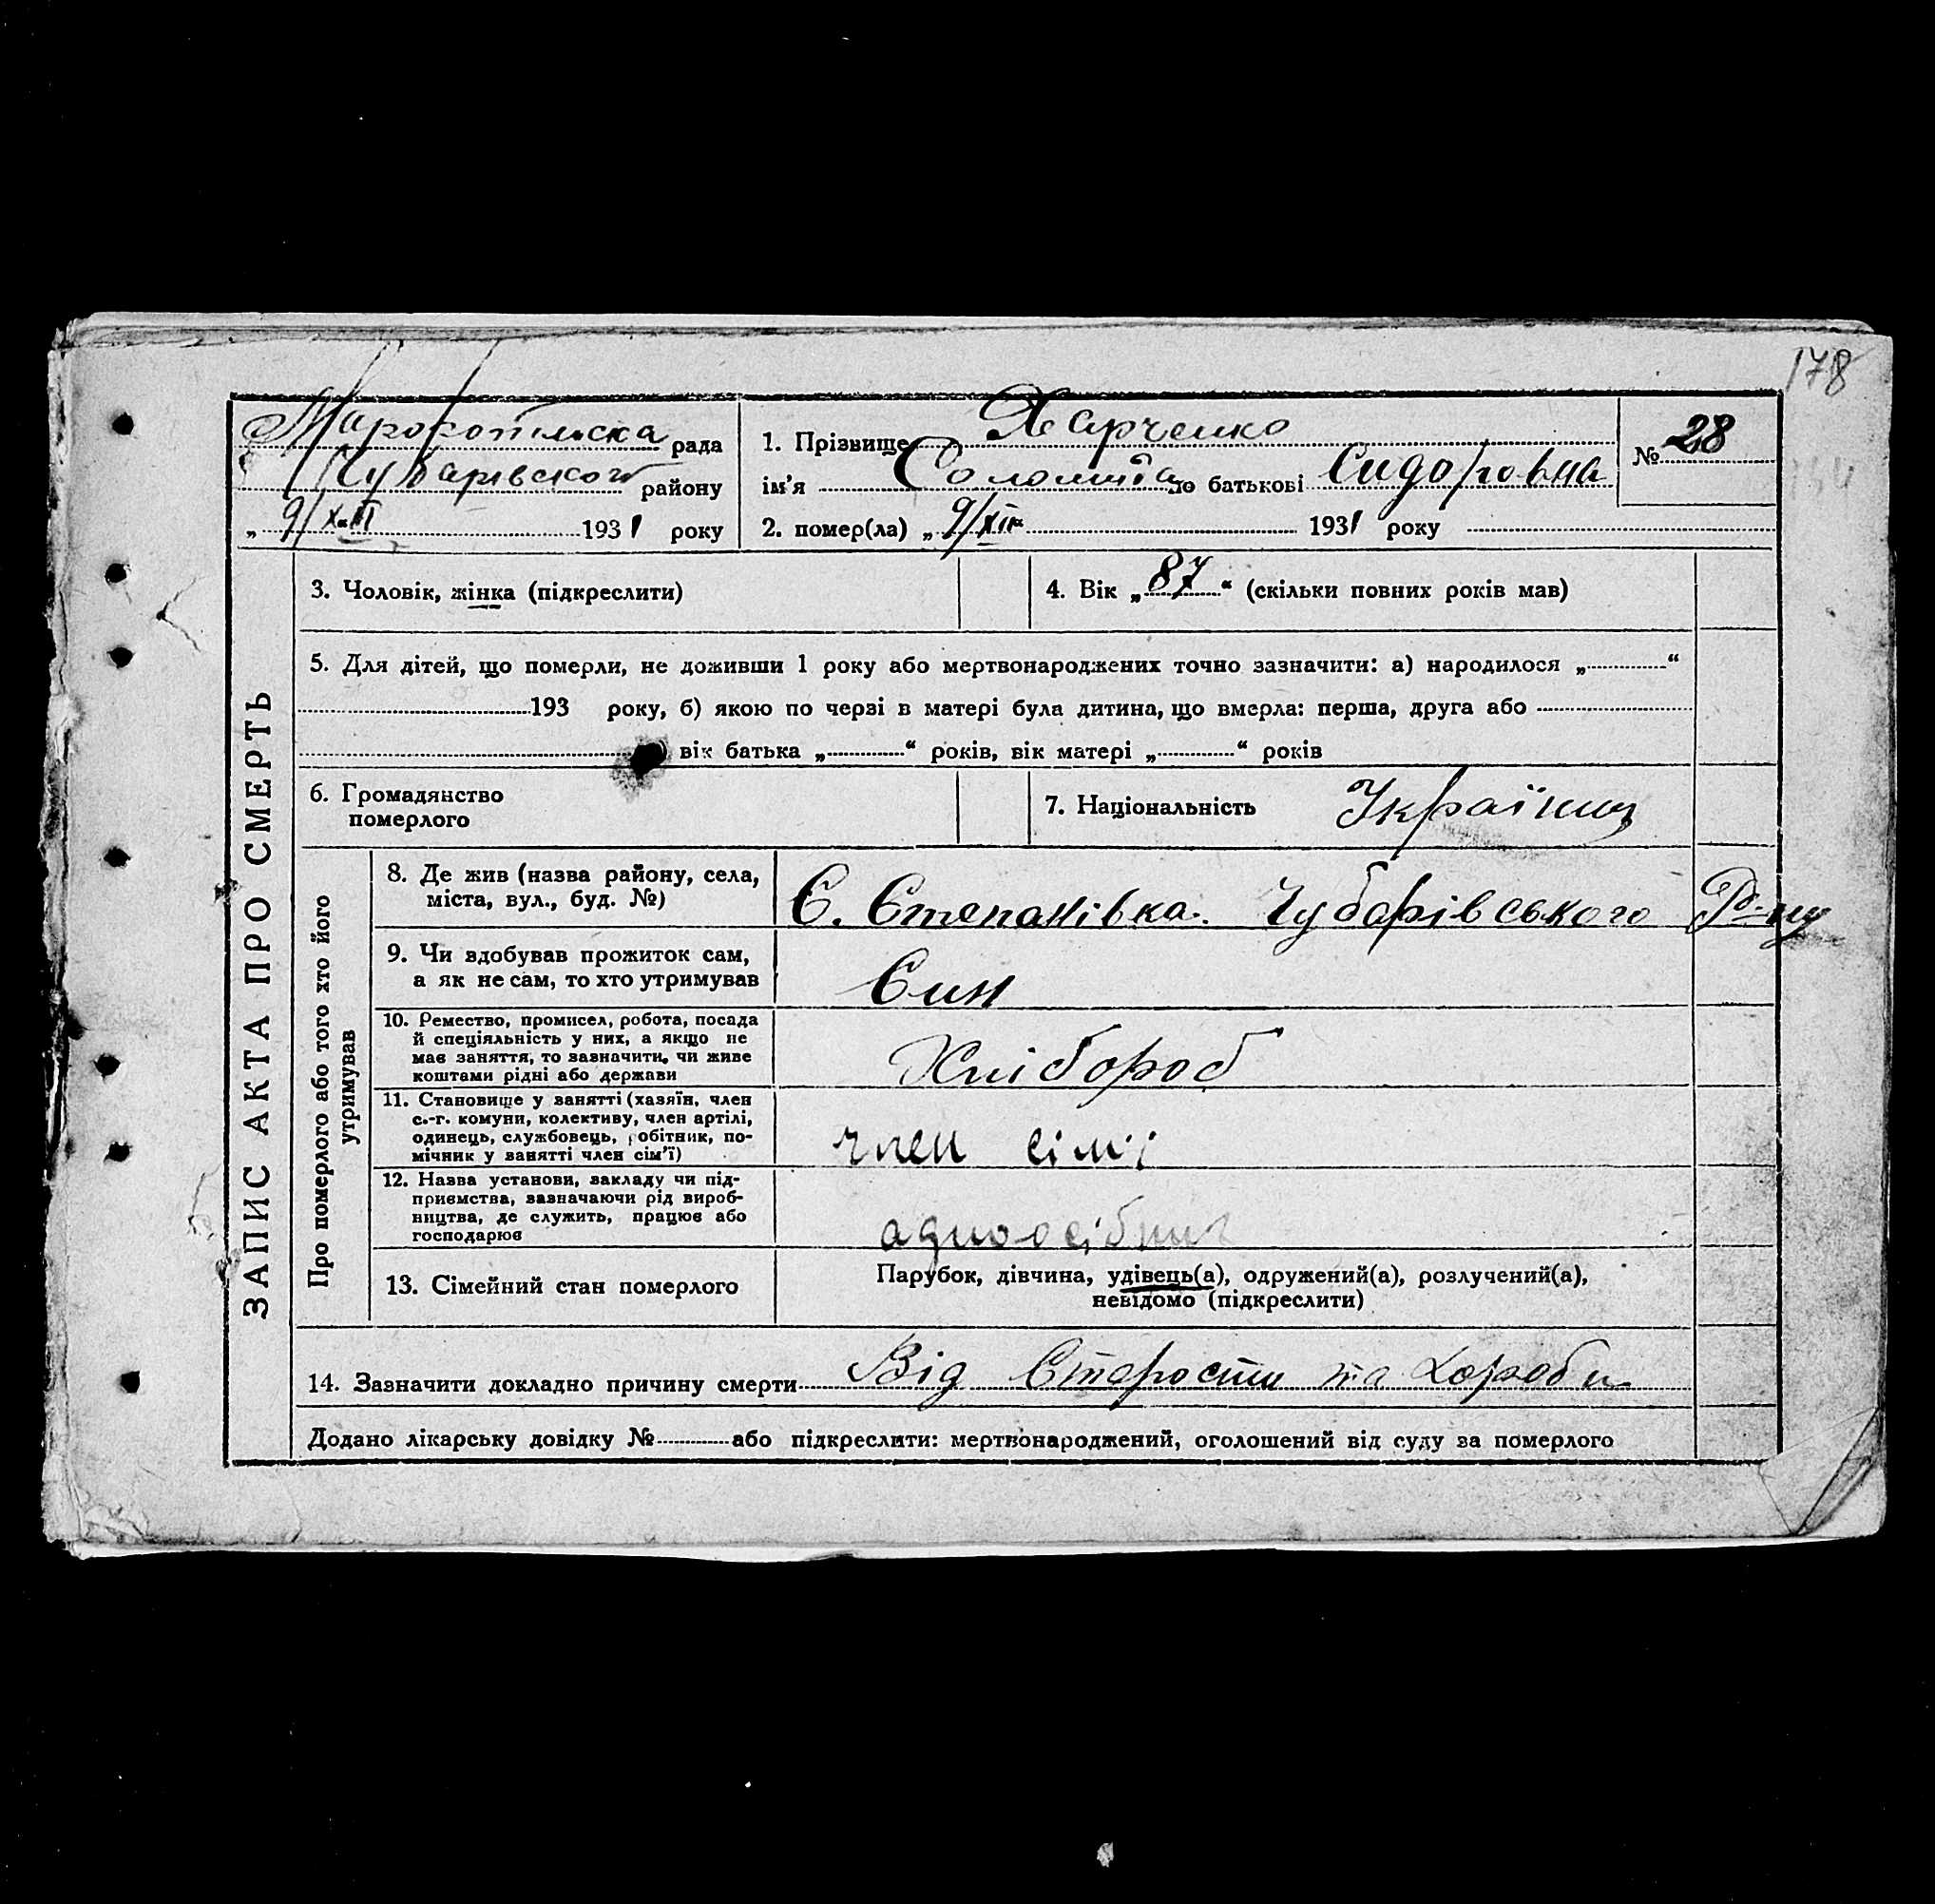 178
рада
Чубарівського району
„ 9/XII “ 1931 року
1. Прізвище Харченко
ім'я Соломія по батькові Сидоровна
2. помер(ла) „ 9/XII “ 1931 року
№ 28
ЗАПИС АКТА ПРО СМЕРТЬ
3. Чоловік, жінка (підкреслити)
4. Вік „ 87 “ (скільки повних років мав)
5. Для дітей, що померли, не доживши 1 року або мертвонароджених точно зазначити: а) народилося „ “
193 року, б) якою по черзі в матері була дитина, що вмерла: перша, друга або
) вік батька „ “ років, вік матері „ “ років
6. Громадянство
померлого
7. Національність
Про померлого або того хто його
утримував
8. Де жив (назва району, села,
міста, вул., буд. №)
С. Степанівка. Чубарівського Р-ну
9. Чи здобував прожиток сам,
а як не сам, то хто утримував
Син
10. Ремество, промисел, робота, посада
й спеціяльність у них, а якщо не
має заняття, то зазначити, чи живе
коштами рідні або держави
Хлібороб
11. Становище у занятті (хазяїн, член
с.-г. комуни, колективу, член артілі,
одинець, службовець, робітник, по-
мічник у занятті член сім'ї)
член сім'ї
12. Назва установи, закладу чи під-
приємства, зазначаючи рід вироб-
ництва, де служить, працює або
господарює
адноосібник
13. Сімейний стан померлого
Парубок, дівчина, удівець(а), одружений(а), розлучений(а),
невідомо (підкреслити)
14. Зазначити докладно причину смерти Від Старости та Хороби
Додано лікарську довідку № або підкреслити: мертвонароджений, оголошений від суду за померлого